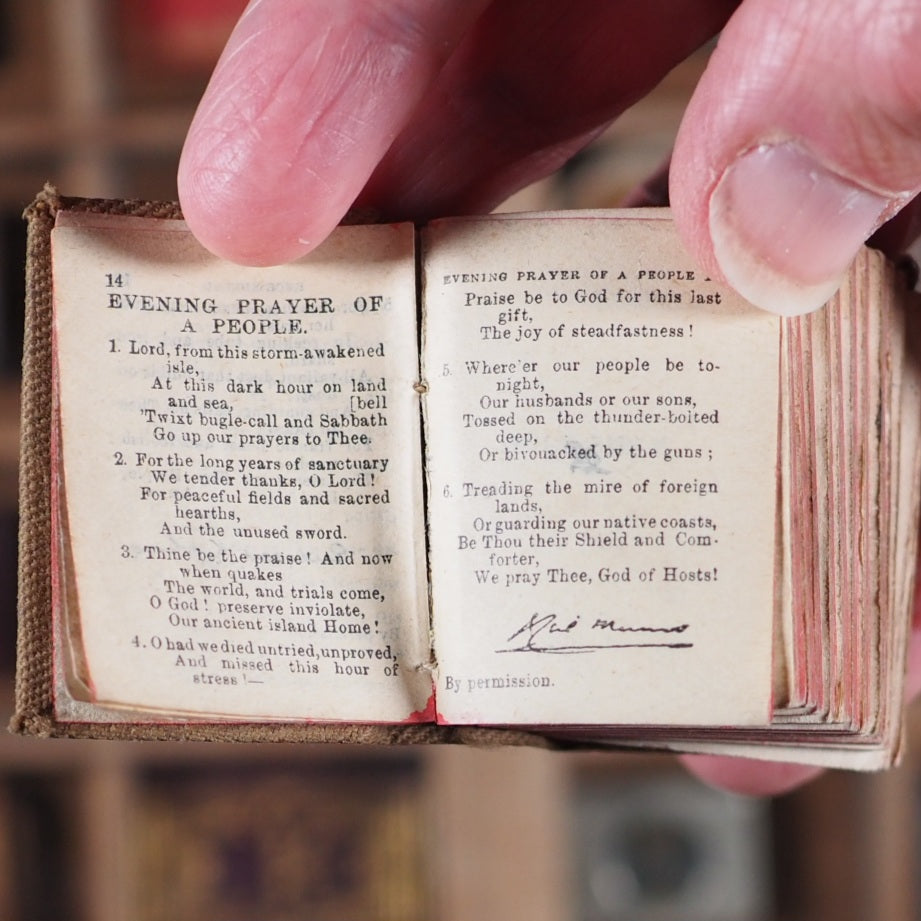 14
EVENING PRAYER OF
A PEOPLE.
1. Lord, from this storm-awakened
isle,
At this dark hour on land
and sea, [bell
'Twixt bugle-call and Sabbath
Go up our prayers to Thee.
2. For the long years of sanctuary
We tender thanks, O Lord!
For peaceful fields and sacred
hearths,
And the unused sword.
3. Thine be the praise! And now
when quakes
The world, and trials come,
O God! preserve inviolate,
Our ancient island Home!
4. O had we died untried, unproved,
And missed this hour of
stress!—
EVENING PRAYER OF A PEOPLE
Praise be to God for this last
gift,
The joy of steadfastness!
5. Where'er our people be to-
night,
Our husbands or our sons,
Tossed on the thunder-bolted
deep,
Or bivouacked by the guns;
6. Treading the mire of foreign
lands,
Or guarding our native coasts,
Be Thou their Shield and Com-
forter,
We pray Thee, God of Hosts!
By permission.